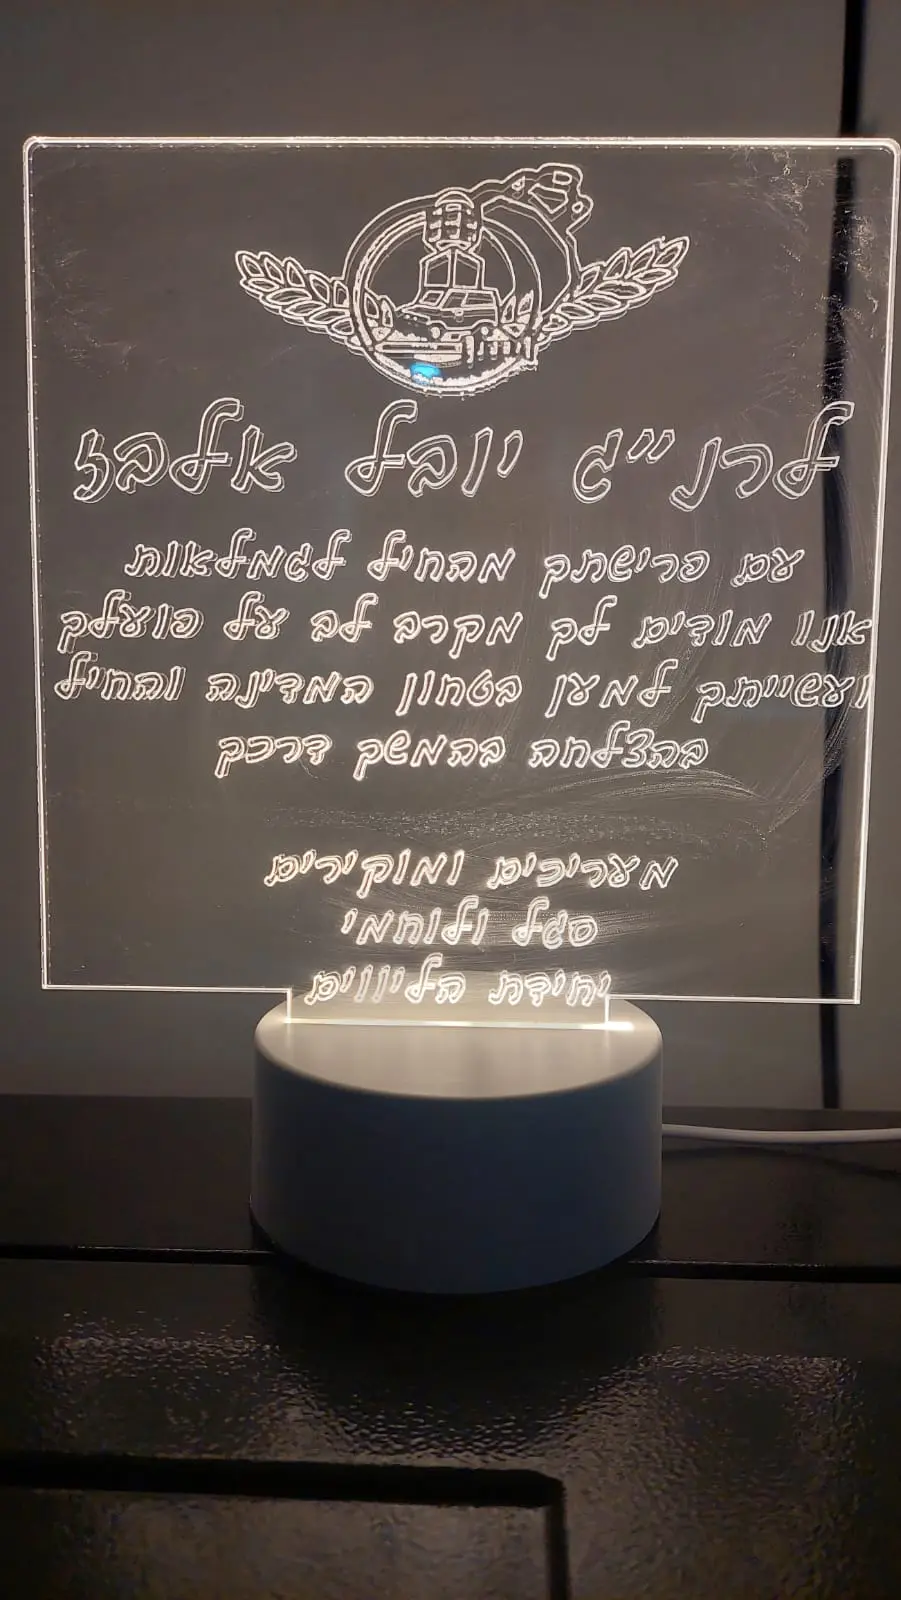 לרנ״ג יובל אלבז
עם פרישתך מהחיל לגמלאות
אנו מודים לך מקרב לב על פועלך
ועשייתך למען בטחון המדינה והחיל
בהצלחה בהמשך דרכך
מעריכים ומוקירים
סגל ולוחמי
יחידת הליווים